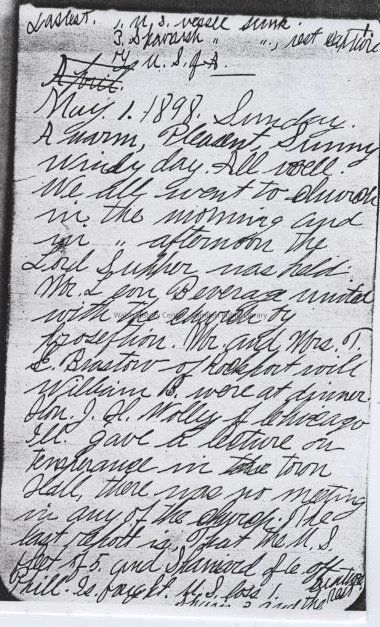 Lastest. 1, U.S. vessle sunk.
3, Spanish " ", rest capture
U.S. of A.
April.
May. 1. 1898. Sunday.
A warm, Pleasent, Sunny
windy day. All well.
We all went to church
in the morning and
in " afternoon the
Lord Supper was held.
Mr. Leon Beverage united
with the church by
profestion. Mr. and Mrs. T.
E. Bristow of Rockport with
William B. were at dinner.
Hon. J. H. of Chicago
Ill. gave a lecture on
temperance in the town
Hall, there was no meeting
in any of the church. The
last report is, That the U.S.
fleet of 5. and Spanierd of 6. off
Phill. Is. fought. U.S. loss 1.
and the rest